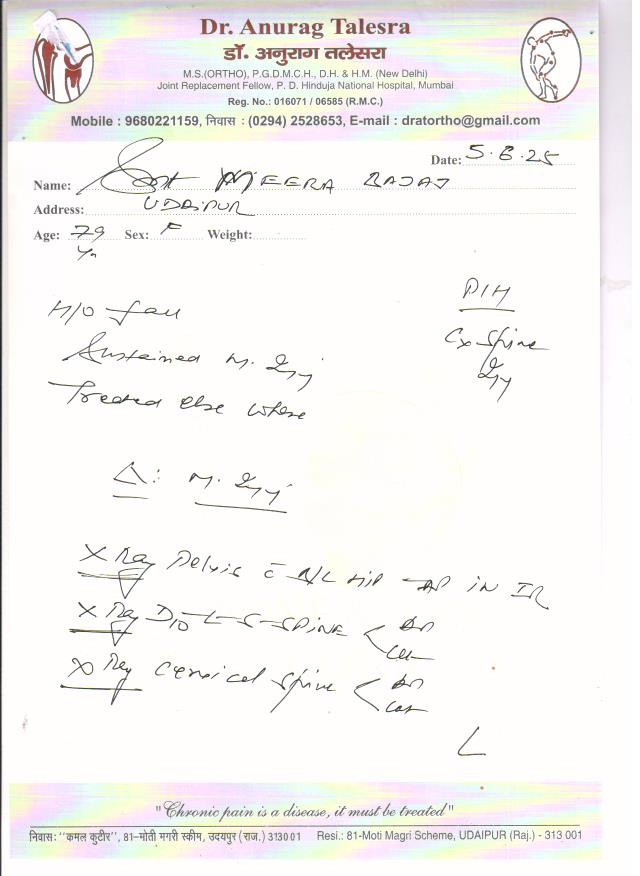 Dr. Anurag Talesra
डॉ. अनुराग तलेसरा
M.S.(ORTHO), P.G.D.M.C.H., D.H. & H.M. (New Delhi)
Joint Replacement Fellow, P. D. Hinduja National Hospital, Mumbai
Reg. No.: 016071 / 06585 (R.M.C.)
Mobile : 9680221159, निवास : (0294) 2528653, E-mail : dratortho@gmail.com
Date: 5.8.25
Name: Smt MEERA BAJAJ
Address: UDAIPUR
Age: 79 Yr Sex: F Weight:
P/H
Cx Spine
Inj
H/O fall
Sustained M. Inj
Treated else where
Δ: M. Inj
X Ray Pelvis c̄ B/L HIP - AP IN IR
X Ray D10-L-S-SPINE < AP
Lat
X Ray Cervical Spine < AP
Lat
"Chronic pain is a disease, it must be treated"
निवास: "कमल कुटीर", 81-मोती मगरी स्कीम, उदयपुर (राज.) 313001 Resi.: 81-Moti Magri Scheme, UDAIPUR (Raj.) - 313 001